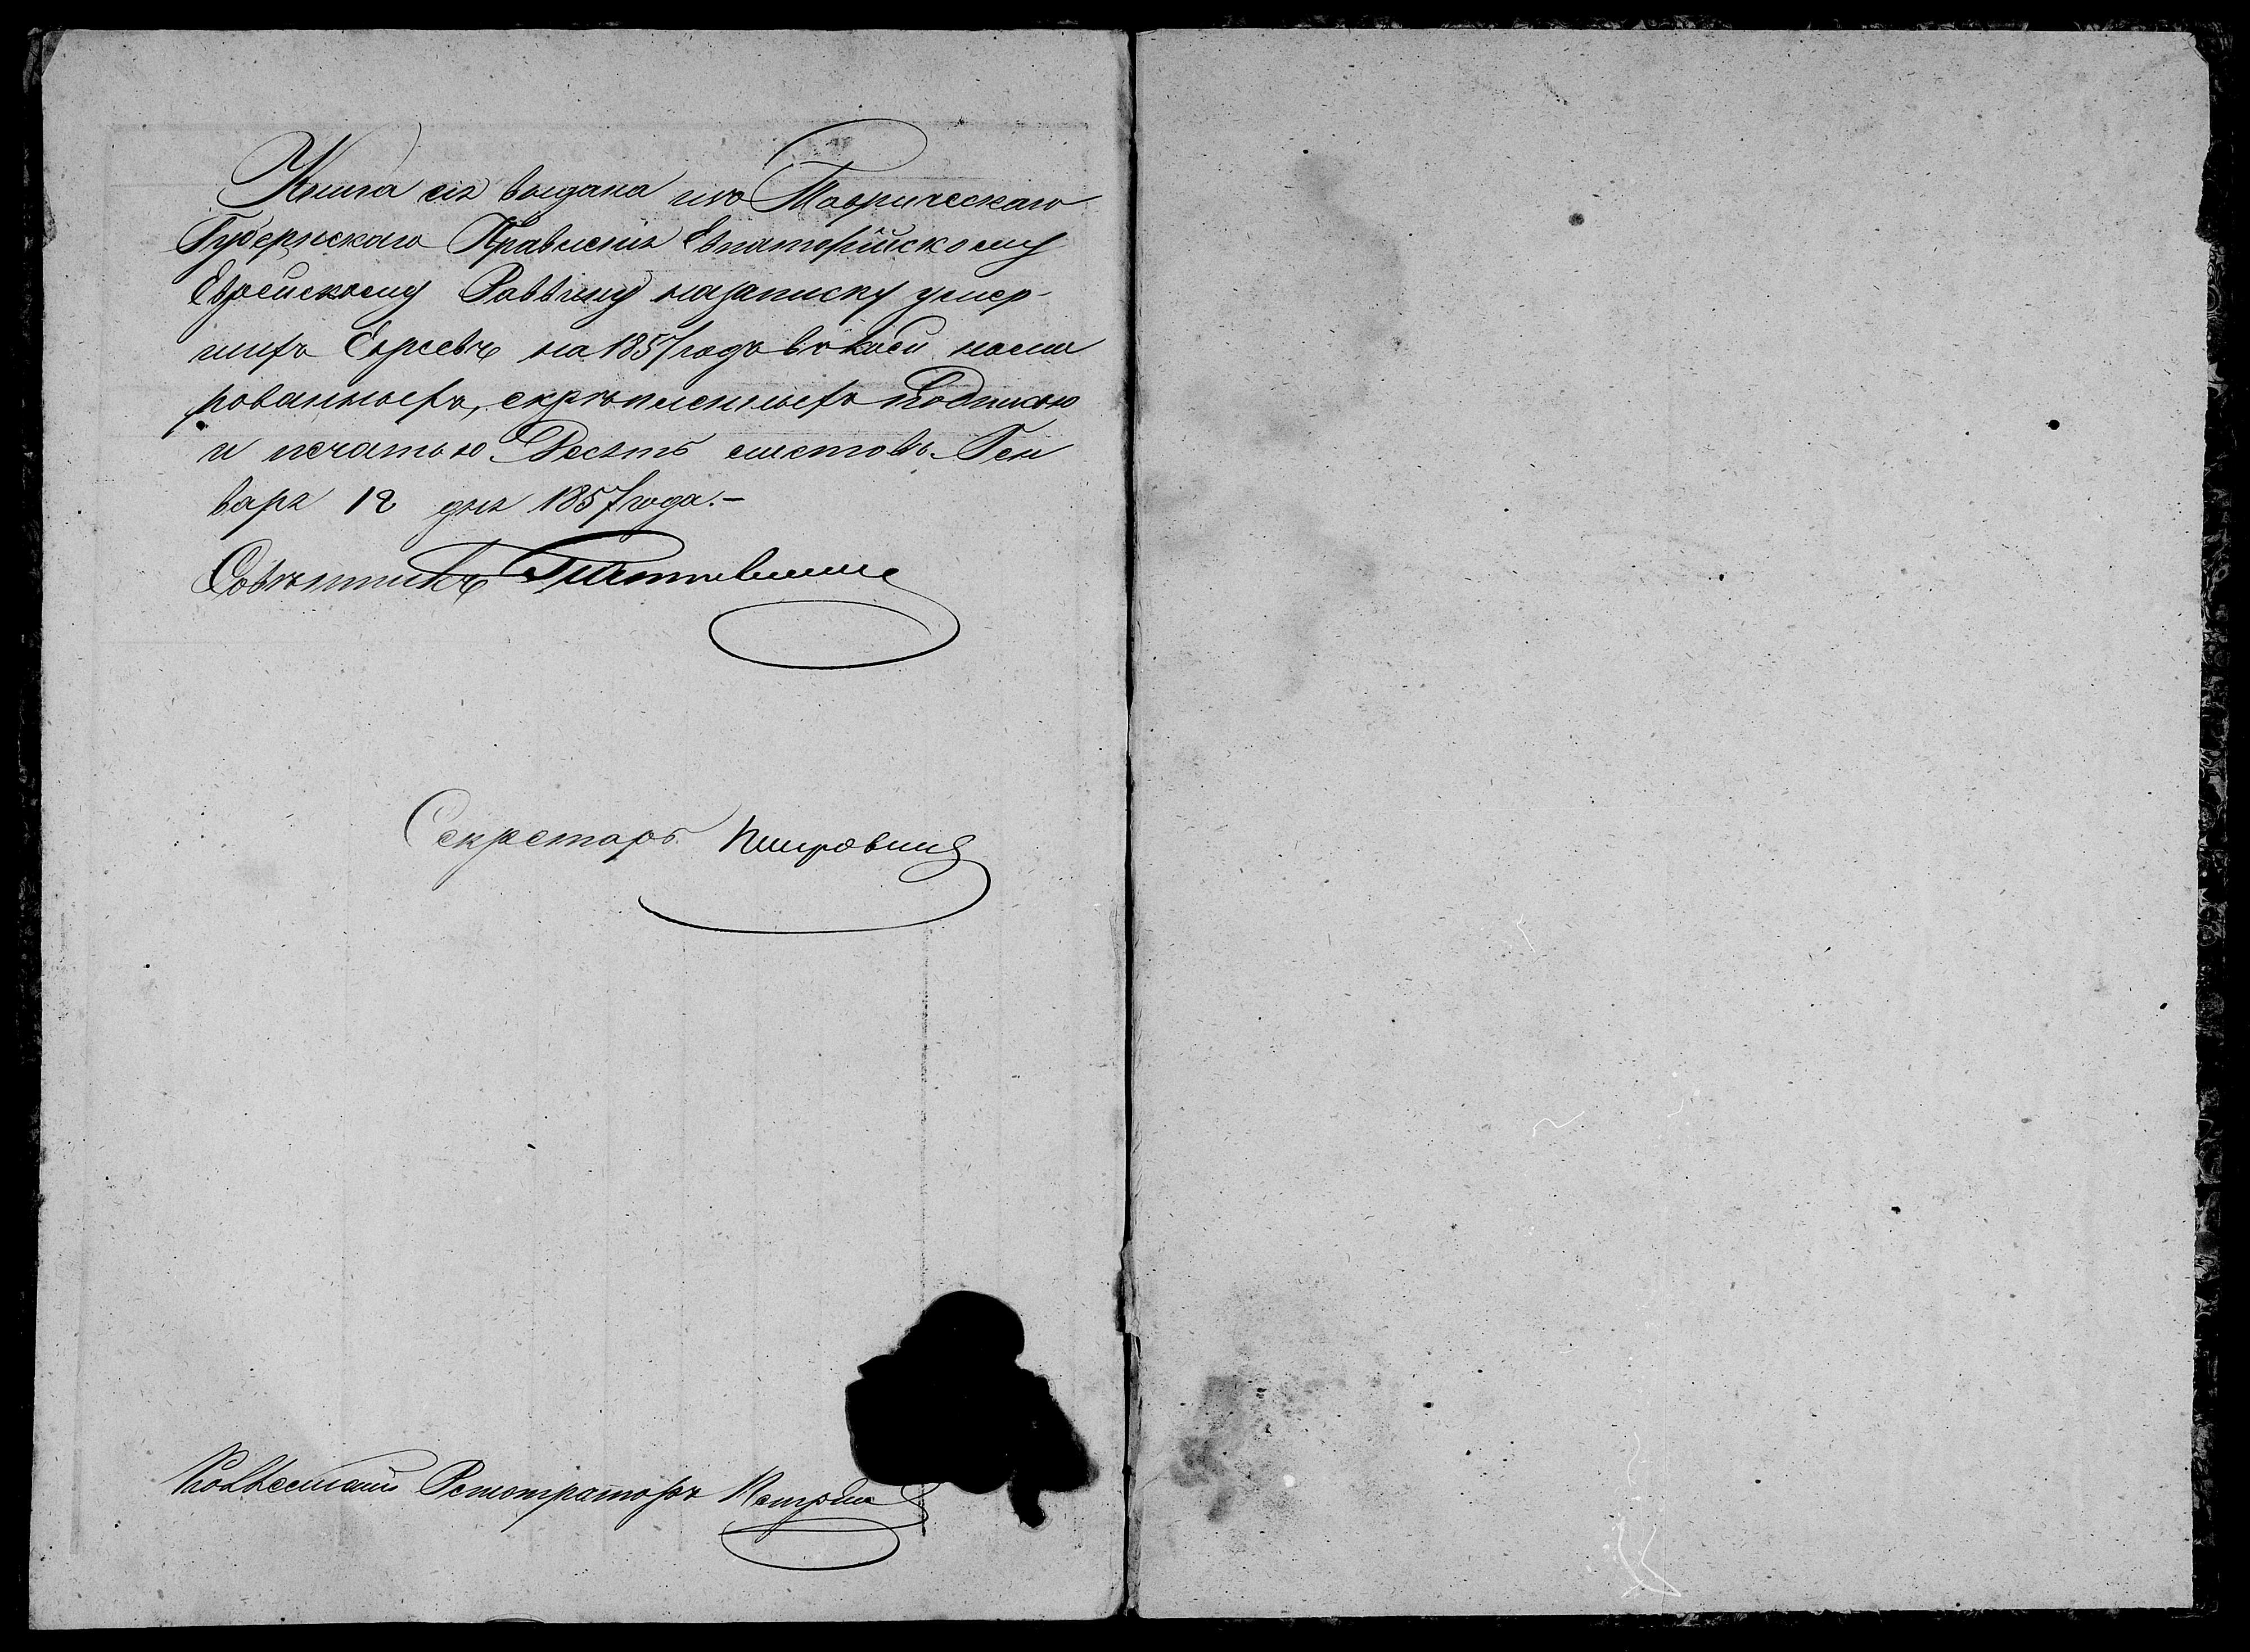 Книга сія выдана изъ Таврическаго
Губернскаго Правленія Евпаторійскому
Еврейскому Раввину на записку умер-
шихъ Евреевъ на 1857 годъ въ коей номи
рованныхъ, скрѣпленныхъ подписью
и печатью Десять листовъ. Ген
варя 12 дня 1857 года.-
Совѣтникъ
Секретарь
Коллежскій Регистраторъ